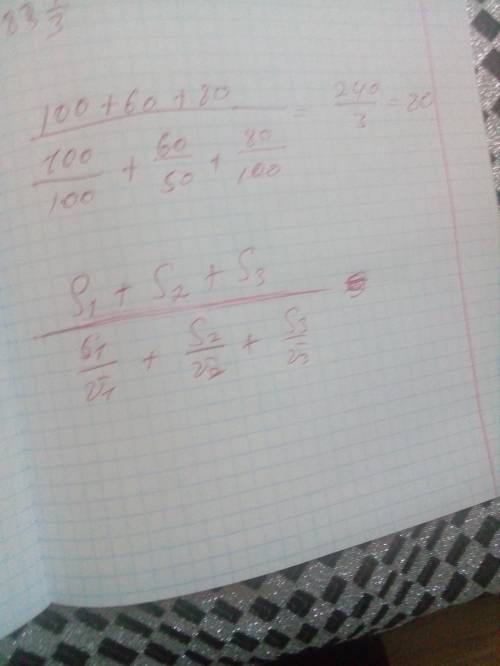 83 1/3
(100 + 60 + 80) / (100/100 + 60/50 + 80/100) = 240/3 = 80
(S₁ + S₂ + S₃) / (S₁/v₁ + S₂/v₂ + S₃/v₃)